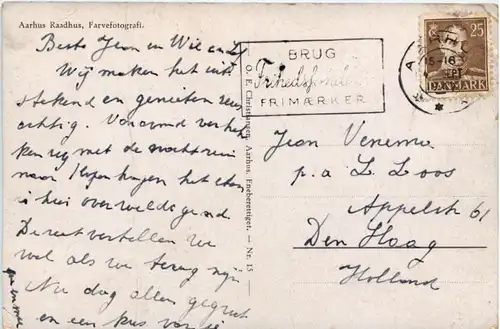 Aarhus Raadhus, Farvefotografi.
Beste Jean en Wil en
Wij maken het uit
stekend en genieten reus
achtig. Vanavond vertrek
ken wij met de nachttrein
naar Kopenhagen het eten
is hier overweldigend
De rest vertellen we
wel als we terug zijn
Nu dag allen gegroet
en een kus van
O. E. Christiansen, Aarhus. Eneberettiget. — Nr. 15
BRUG
Frihedsfondens
FRIMÆRKER
25
DANMARK
Jean Venema
p.a L. Loos
Appelstr 61
Den Haag
Holland